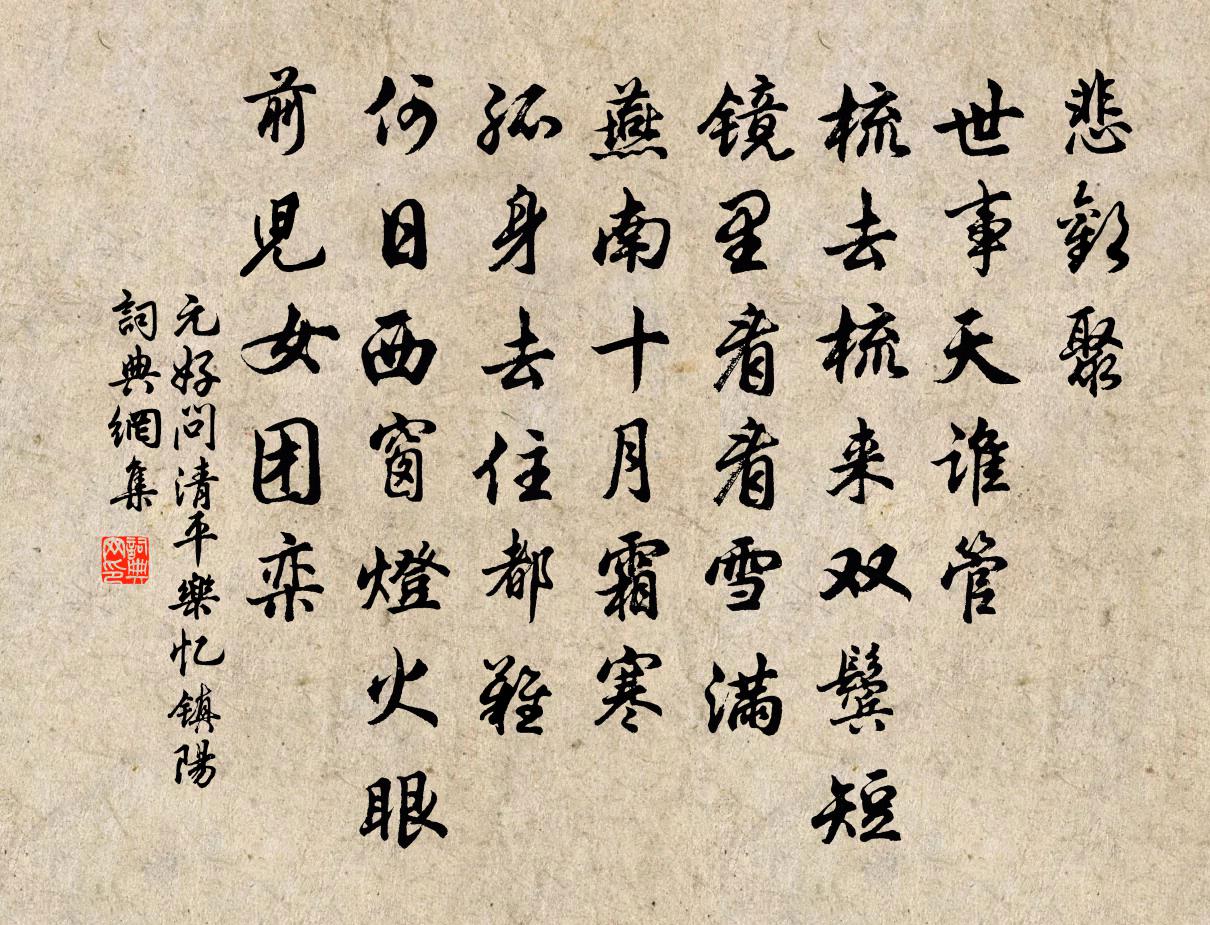 悲歡聚
世事天谁管
梳去梳来双鬓短
镜里看看雪满
燕南十月霜寒
孤身去住都難
何日西窗燈火眼
前児女团栾
元好问清平樂忆镇陽
詞典網集
詞典网印